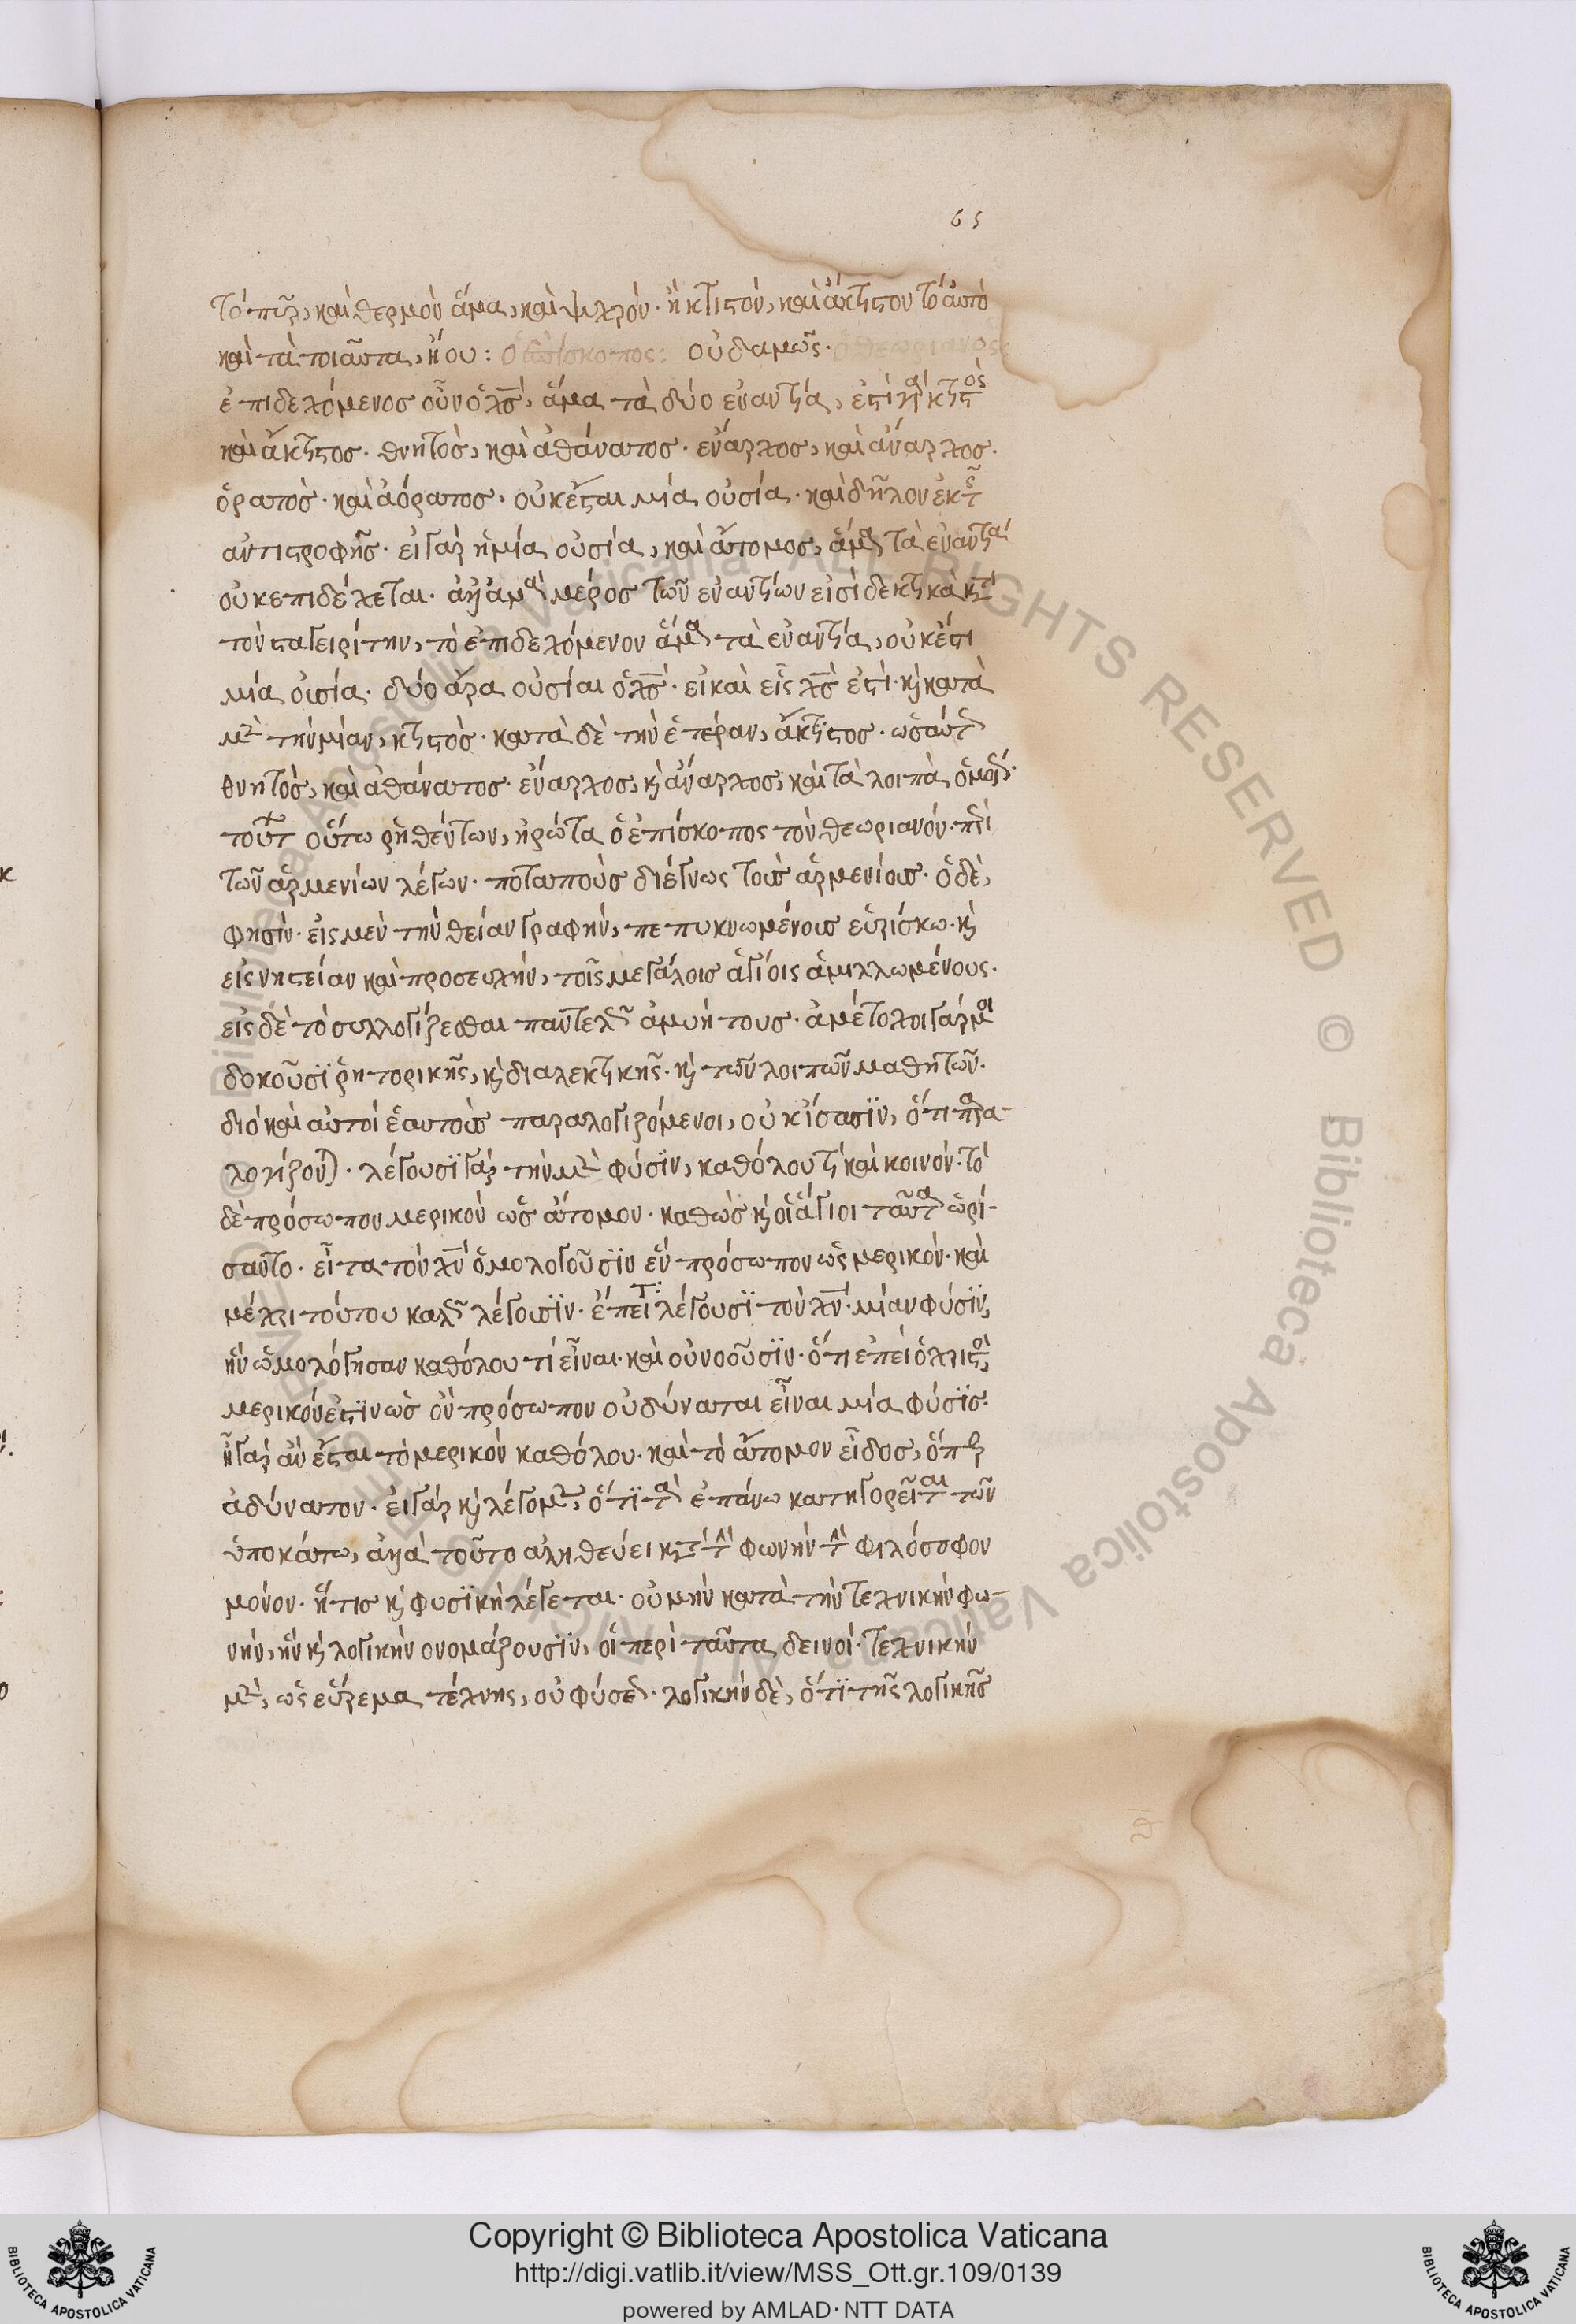 65
τὸ πῦρ, καὶ θερμὸν ἅμα, καὶ ψυχρόν· ἢ κτιστὸν, καὶ ἄκτιστον τὸ αὐτὸ
καὶ τὰ τοιαῦτα, ἢ οὔ: ὁ ἐπίσκοπος: οὐδαμῶς· ὁ θεωριανός:
ἐπιδεχόμενος οὖν ὁ χς, ἅμα τὰ δύο ἐναντία, ἐστὶ γὰρ κτιστὸς
καὶ ἄκτιστος· θνητὸς, καὶ ἀθάνατος· ἔναρχος, καὶ ἄναρχος·
ὁρατὸς· καὶ ἀόρατος, οὐκ ἔσται μία οὐσία· καὶ δῆλον ἐκ τῆς
ἀντιστροφῆς· εἰ γὰρ ἡ μία οὐσία, καὶ ἄτομος, ἅμα τὰ ἐναντία
οὐκ επιδέχεται· ἀλλ' ἀνὰ μέρος τῶν ἐναντίων εἰσὶ δεκτικὰ κατὰ
τὸν σταγειρίτην, τὸ ἐπιδεχόμενον ἅμα τὰ ἐναντία, οὐκ ἔστι
μία οὐσία· δύο ἄρα οὐσίαι ὁ χς· εἰ καὶ εἷς χς ἐστί· καὶ κατὰ
μὲν τὴν μίαν, κτιστὸς· κατὰ δὲ τὴν ἑτέραν, ἄκτιστος· ὡσαύτως
θνητὸς, καὶ ἀθάνατος· ἔναρχος, καὶ ἄναρχος, καὶ τὰ λοιπὰ ὁμοίως·
τούτων οὕτω ῥηθέντων, ἠρώτα ὁ ἐπίσκοπος τὸν θεωριανόν· περὶ
τῶν ἀρμενίων λέγων· ποταποὺς διέγνως τοὺς ἀρμενίους· ὁ δὲ,
φησὶν· εἰς μὲν τὴν θείαν γραφὴν, πεπυκνωμένους εὑρίσκω· καὶ
εἰς νηστείαν καὶ προσευχὴν, τοῖς μεγάλοις ἁγίοις ἁμιλλωμένους·
εἰς δὲ τὸ συλλογίζεσθαι παντελῶς ἀμυήτους· ἀμέτοχοι γάρ μοι
δοκοῦσϊ ῥητορικῆς, καὶ διαλεκτικῆς· καὶ τῶν λοιπῶν μαθητῶν·
διὸ καὶ αὐτοὶ ἑαυτοὺς παραλογιζόμενοι, οὐκ ἴσασϊν, ὅτι παρα-
λογίζονται· λέγουσϊ γὰρ τὴν μὲν φύσϊν, καθόλου τί καὶ κοινόν· τὸ
δὲ πρόσωπον μερικὸν ὡς ἄτομον· καθὼς καὶ οἱ ἅγιοι ταῦτα ὡρί-
σαντο· εἶτα τὸν χν ὁμολογοῦσϊν ἓν πρόσωπον ὡς μερικόν· καὶ
μέχρι τούτου καλῶς λέγουσϊν· ἔπειτα λέγουσϊ τὸν χν· μίαν φύσϊν,
ἣν ὡμολόγησαν καθόλου τί εἶναι· καὶ οὐ νοοῦσϊν· ὅτι ἐπεὶ ὁ χριστὸς
μερικὸν ἐστϊν ὡς ὂν πρόσωπον οὐ δύναται εἶναι μία φύσϊς·
ἦ γὰρ ἂν ἔσται τὸ μερικὸν καθόλου· καὶ τὸ ἄτομον εἶδος, ὅπερ
ἀδύνατον· εἰ γὰρ καὶ λέγομεν, ὅτϊ τὰ ἐπάνω κατηγορεῖται τῶν
ὑποκάτω, ἀλλὰ τοῦτο ἀληθεύει κατὰ τὴν φωνὴν τὴν φιλόσοφον
μόνον· ἥτις καὶ φυσϊκὴ λέγεται· οὐ μὴν κατὰ τὴν τεχνικὴν φω-
νὴν, ἣν καὶ λογικὴν ὀνομάζουσϊν, οἱ περὶ ταῦτα δεινοί· τεχνικὴν
μὲν, ὡς εὕρεμα τέχνης, οὐ φύσεως· λογικὴν δὲ, ὅτϊ τῆς λογικῆς
Biblioteca Apostolica Vaticana ALL RIGHTS RESERVED ©
Copyright © Biblioteca Apostolica Vaticana
http://digi.vatlib.it/view/MSS_Ott.gr.109/0139
powered by AMLAD·NTT DATA
BIBLIOTECA APOSTOLICA VATICANA
BIBLIOTECA APOSTOLICA VATICANA